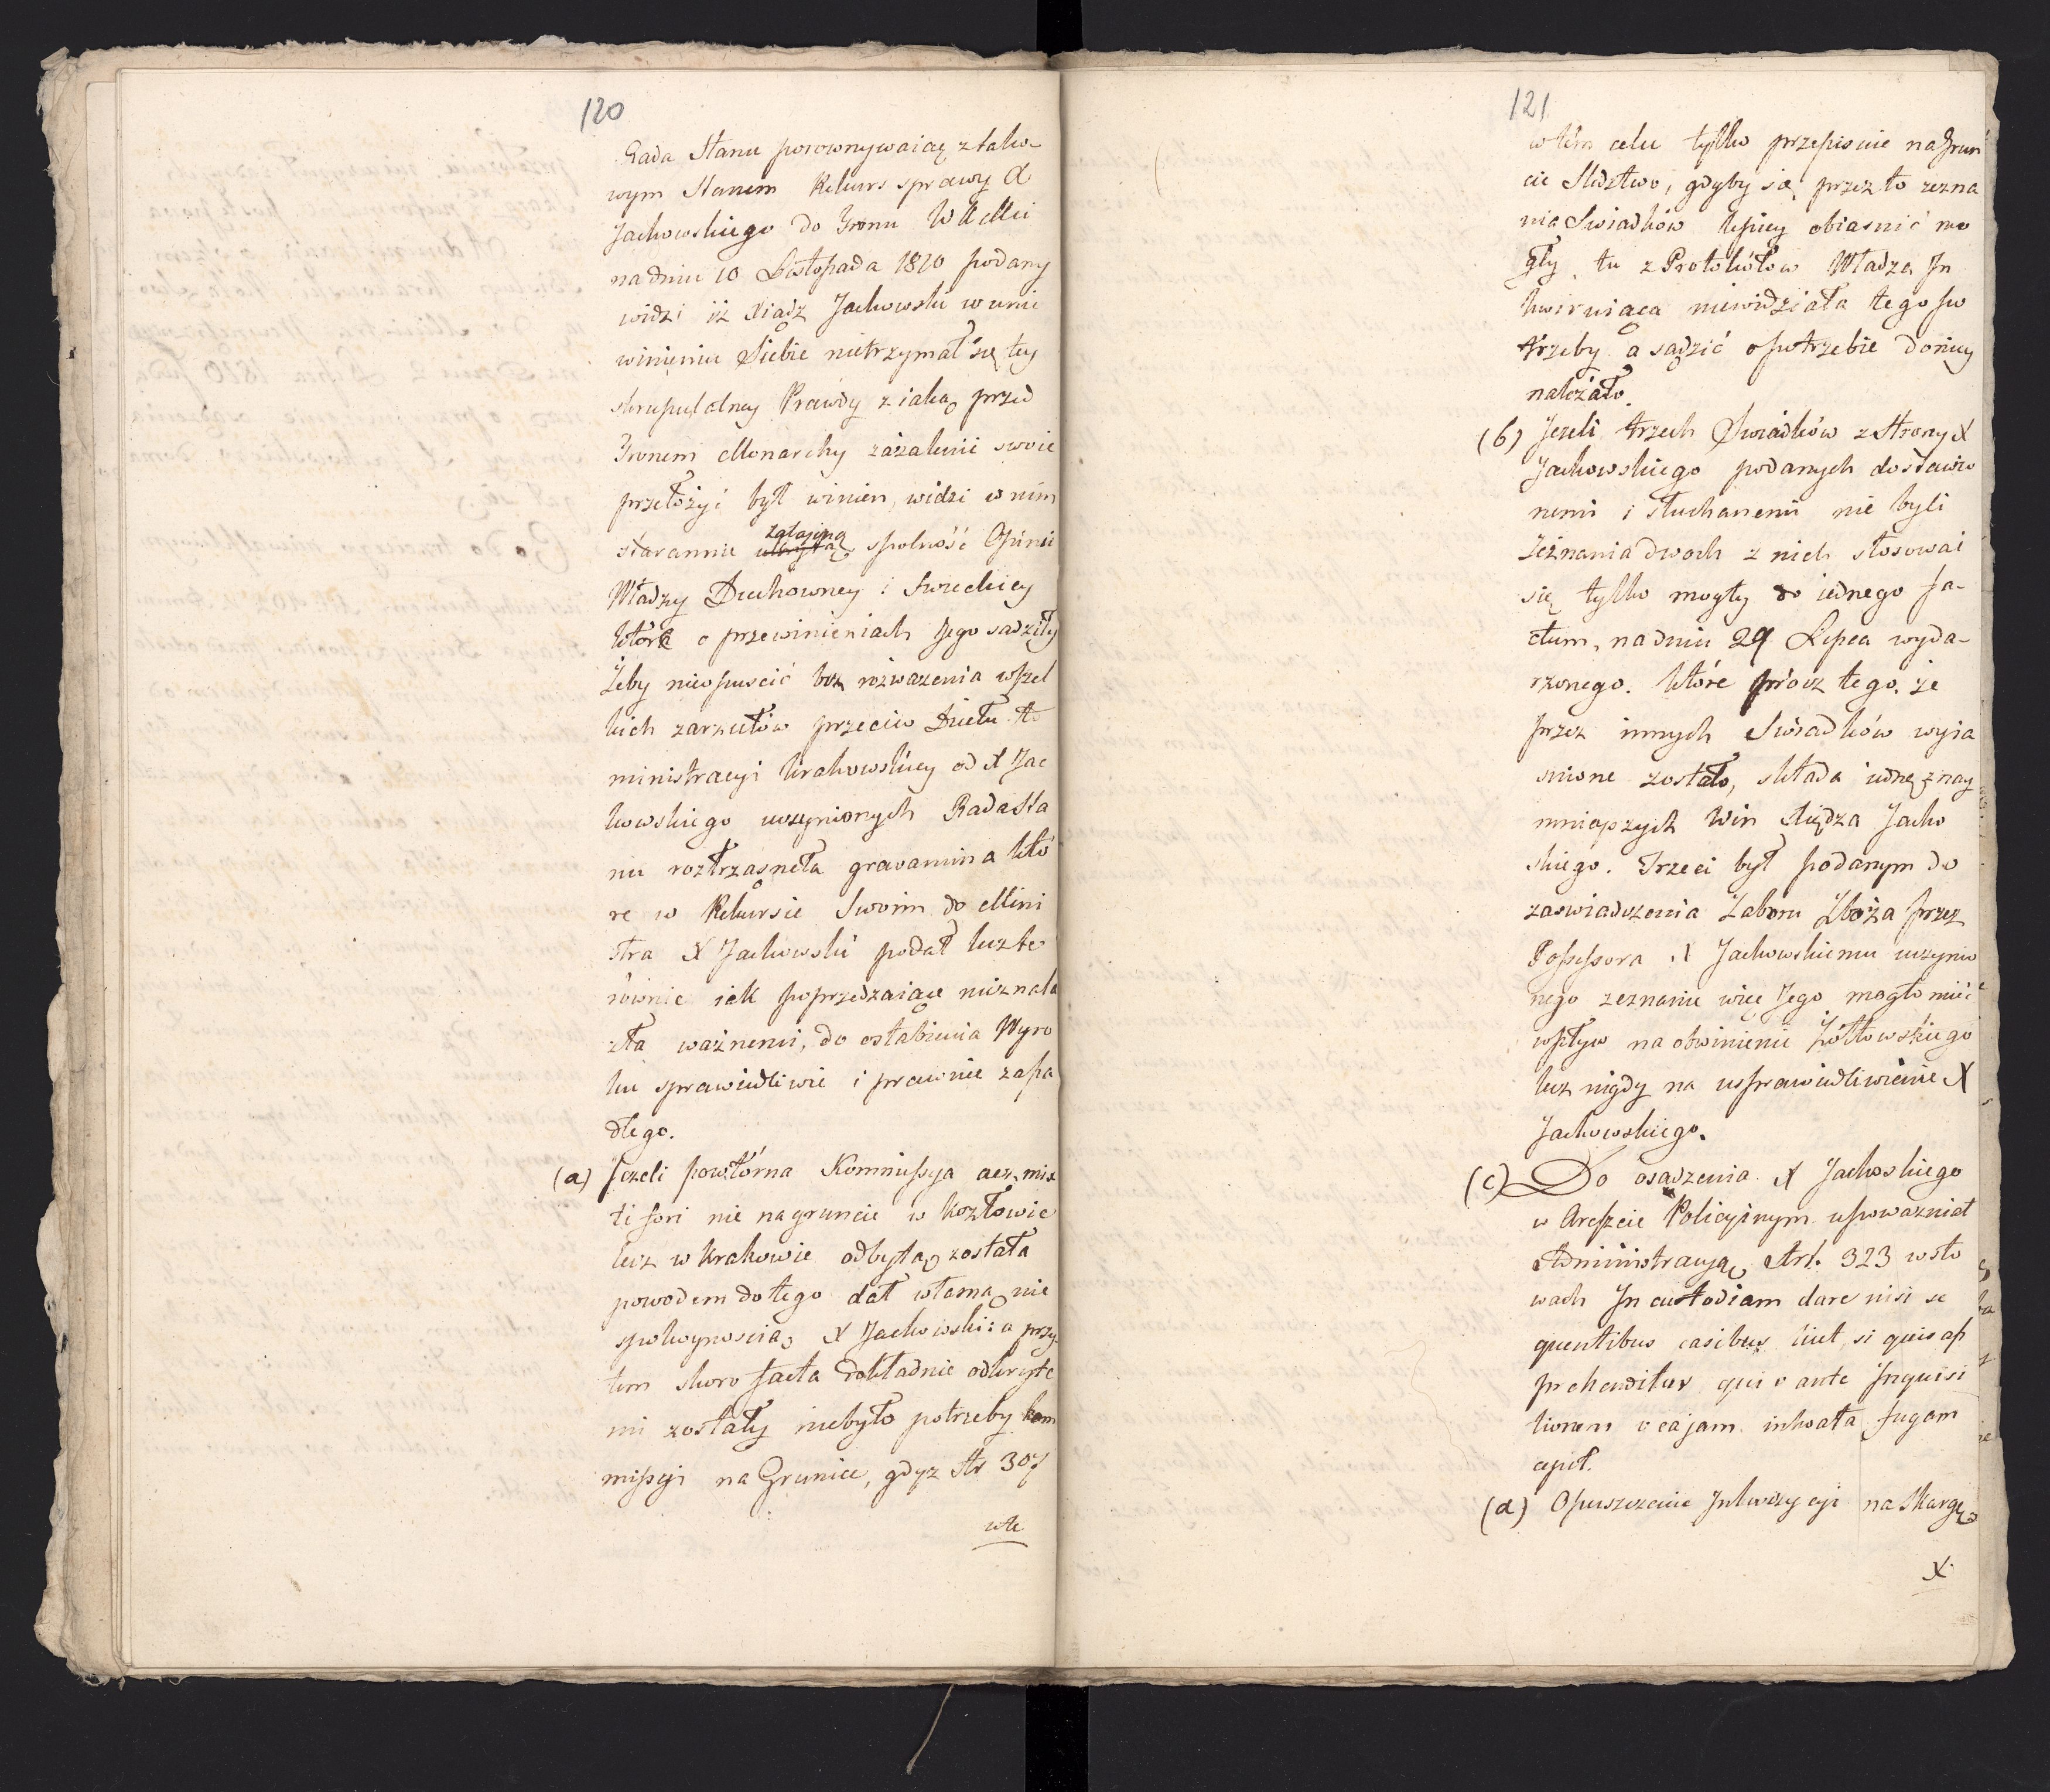 120
Rada Stanu porownywaiąc z tako-
wym Stanem Rekurs sprawy X
Jachowskiego do Tronu W K Mci
na dniu 10 Listopada 1810 podany
widzi iż Xiądz Jachowski w unie
winieniu Siebie nietrzymał się tey
skrupulatney Prawdy z iaką przed
Tronem Monarchy zażalenie swoie
przełożyć był winien, widzi w nim
zatajoną
starannie ukrytą spolność Opinii
Władzy Duchowney i Swieckiey
które o przewinieniach Jego sądziły
Żeby nieopuscić bez rozwazenia wszel
kich zarzutów przeciw Dziełu Ad
ministracyi Krakowskiey od X Jac
kowskiego uczynionych Rada Sta
nu roztrzasneła gravamina któ
re w Rekursie Swoim do Mini
stra X Jachowski podał lecz te
rownie iak poprzedzaiące nieznala
zła ważnemi, do osłabienia Wyro
ku sprawiedliwie i prawnie zapa
dłego.
(a) Jezeli powtórna Kommissya act. mix
ti fori nie na gruncie w Kozłowie
lecz w Krakowie odbytą została
powodem do tego dał własną nie
spokoynoscią X Jachowski: a przy
tem skoro facta dokładnie odkryte
mi zostały niebyło potrzeby kom
missyi na Gruncie, gdyz Ar 307
w te
121
w tém celu tylko przepisuie na grun
cie Sledztwo, gdyby się przez to zezna
nia Swiadków lepiey obiasnić mo
gły, tu z Protokółow Władza In
kwiruiąca niewidziała tego po
trzeby a sądzić o potrzebie do niey
nalézało.
(b) Jezeli trzech Swiadków z Strony X
Jachowskiego podanych dostawio
nemi i słuchanemi nie byli
Zeznania dwoch z nich stosowai
się tylko mogły do iednego fa-
ctum, na dniu 29 Lipca wyda-
rzonego. które prócz tego, że
przez innych Swiadków wyia
snione zostało, składa iednę z nay
mnieyszych Win Xiędza Jacho
skiego. Trzeci był podanym do
zaswiadczenia Zaboru Zboża przez
Possessora X Jachowskiemu uczynio
nego zeznanie więc Jego mogło mieć
wpływ na obwinienie Żółtowskiego
lecz nigdy na usprawiedliwienie X
Jachowskiego.
(c) Do osadzenia X Jachoskiego
w Areszcie Policyinym upowazniał
Administracyą Art. 323 w sło
wach In custodiam dare nisi se
quentibus casibus licet, si quis ap
prehenditur qui v ante Inquisi
tionem v ea jam inhoata fugam
cepit.
(d) Opuszczenie Inkwizycyi na Skargę
X